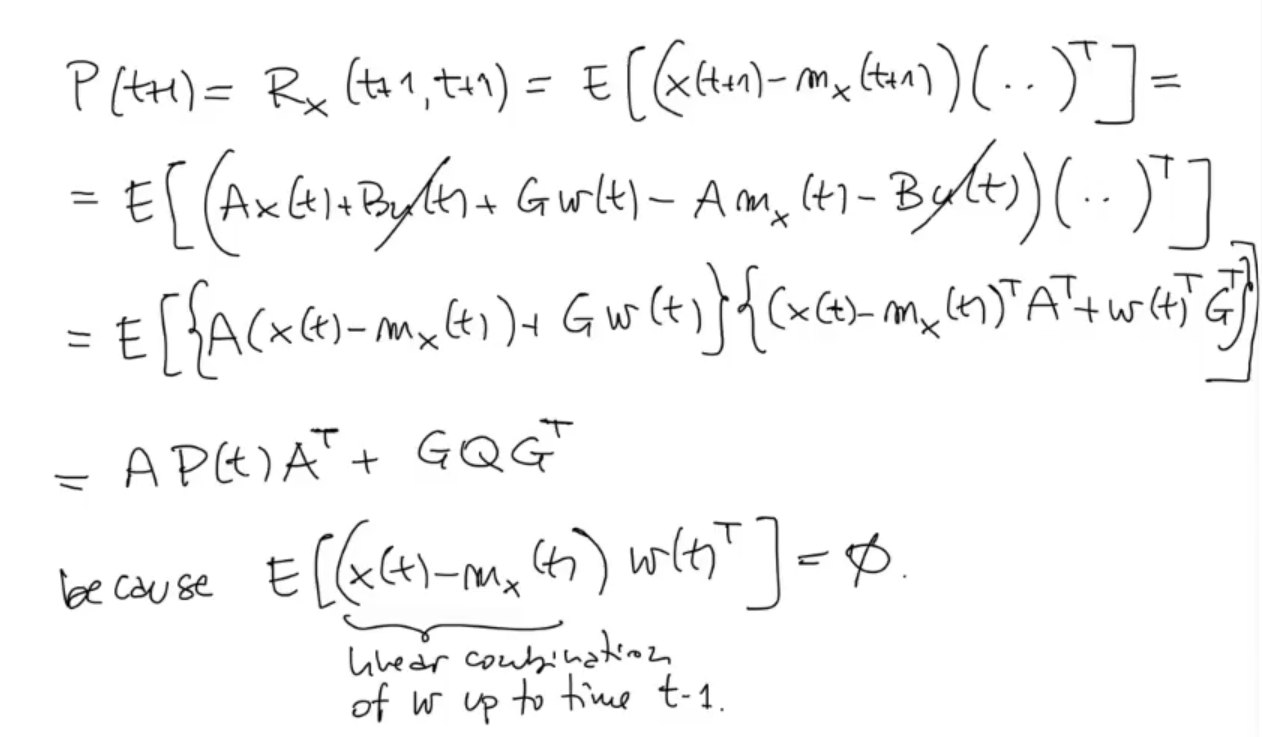 P(t+1) = R_x (t+1, t+1) = E[(x(t+1) - m_x(t+1))(..)^T] =
= E[(Ax(t) + Bu(t) + Gw(t) - Am_x(t) - Bu(t))(..)^T]
= E[{A(x(t) - m_x(t)) + Gw(t)}{(x(t) - m_x(t))^T A^T + w(t)^T G^T}]
= AP(t)A^T + GQG^T
because E[(x(t) - m_x(t)) w(t)^T] = ∅.
linear combination
of w up to time t-1.